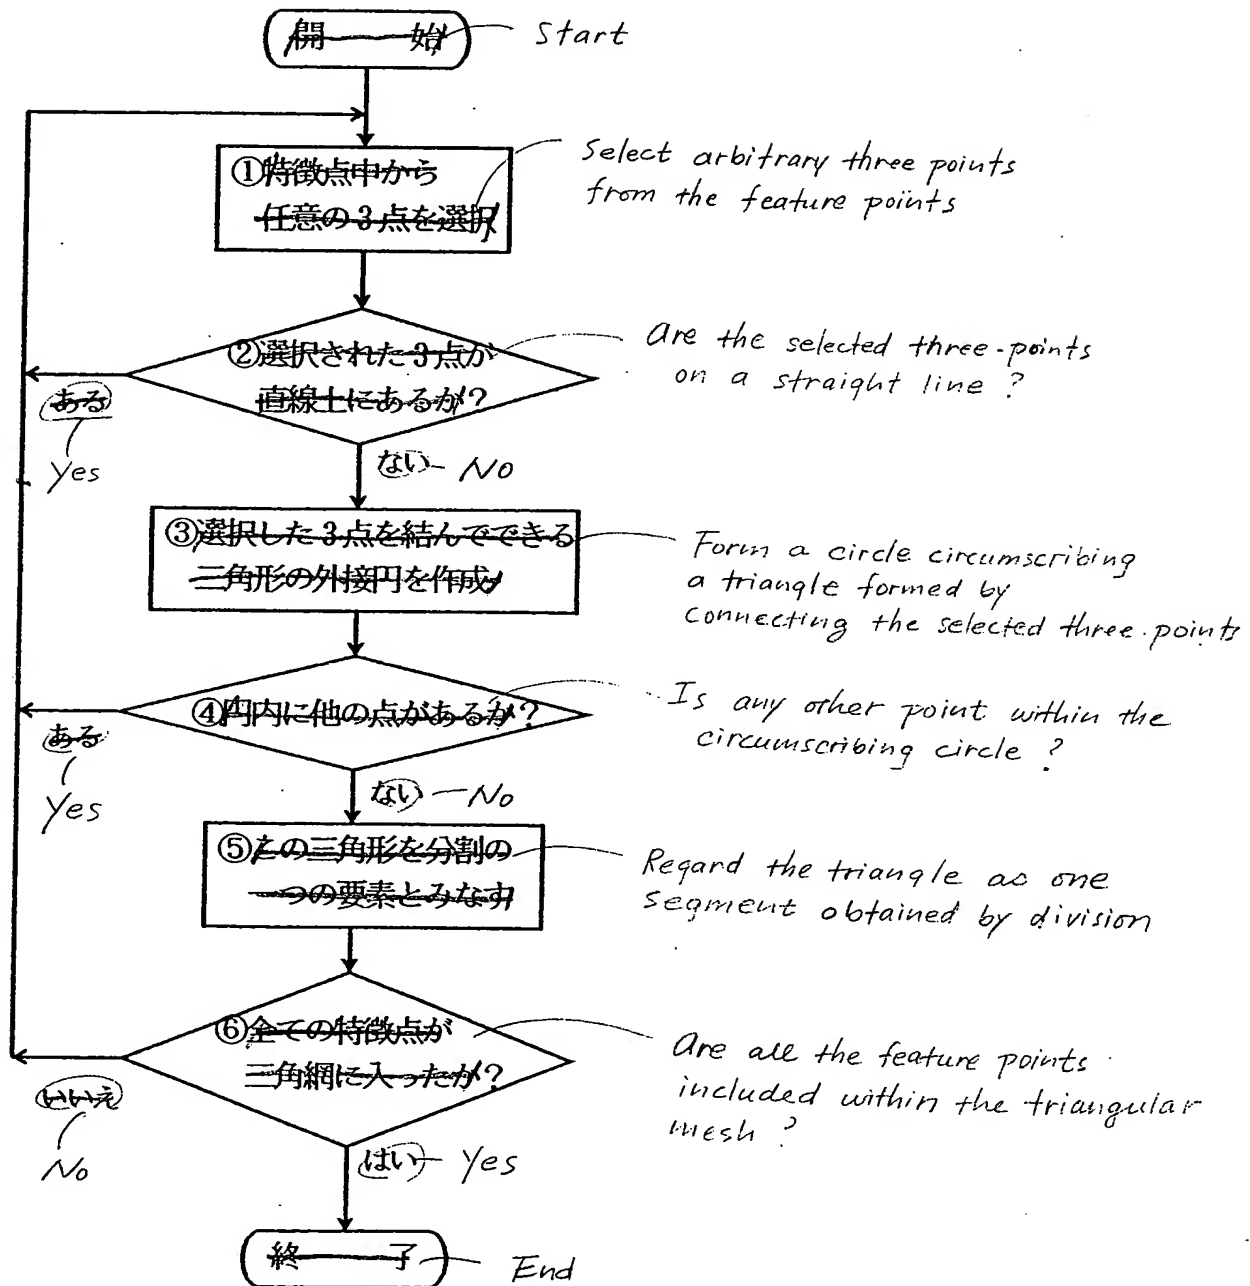 開始 Start
①特徴点中から
任意の3点を選択
Select arbitrary three points
from the feature points
②選択された3点が
直線上にあるか?
Are the selected three-points
on a straight line ?
ある
Yes
ない No
③選択した3点を結んでできる
三角形の外接円を作成
Form a circle circumscribing
a triangle formed by
connecting the selected three points
④円内に他の点があるか?
Is any other point within the
circumscribing circle ?
ある
Yes
ない No
⑤この三角形を分割の
一つの要素とみなす
Regard the triangle as one
segment obtained by division
⑥全ての特徴点が
三角網に入ったか?
Are all the feature points
included within the triangular
mesh ?
いいえ
No
はい Yes
終了 End